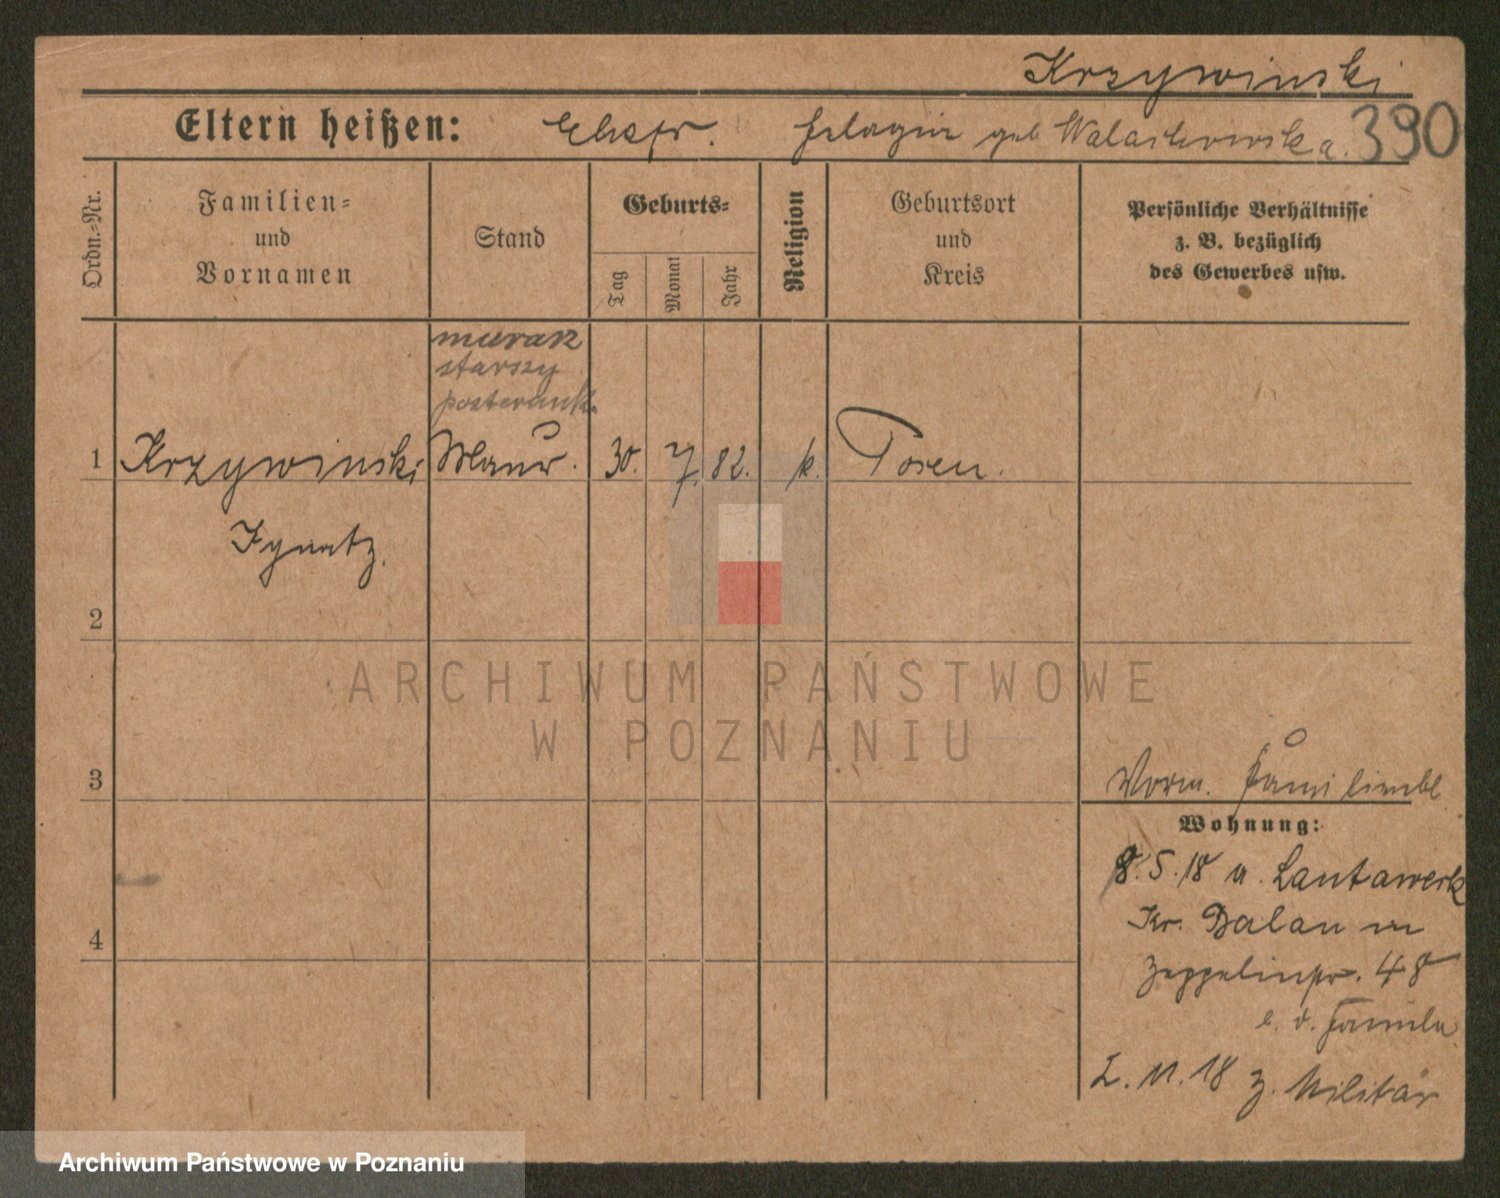 Krzywinski
Eltern heißen: Ehefr. Pelagia geb Walachowska. 390
Ordn.-Nr.
Familien-
und
Vornamen
Stand
Geburts-
Tag
Monat
Jahr
Religion
Geburtsort
und
Kreis
Persönliche Verhältnisse
z. B. bezüglich
des Gewerbes usw.
murarz
starszy
posterunk.
1 Krzywinski Maur. 30. 7. 82. k. Posen.
Ignatz.
2
ARCHIWUM PAŃSTWOWE
W POZNANIU
3
Vorm. Familienbl
Wohnung:
8.5.18 n. Lautawerk
Kr. Calau in
Zeppelinstr. 48
b. d. Familie
4
2.11.18 z. Militär
Archiwum Państwowe w Poznaniu